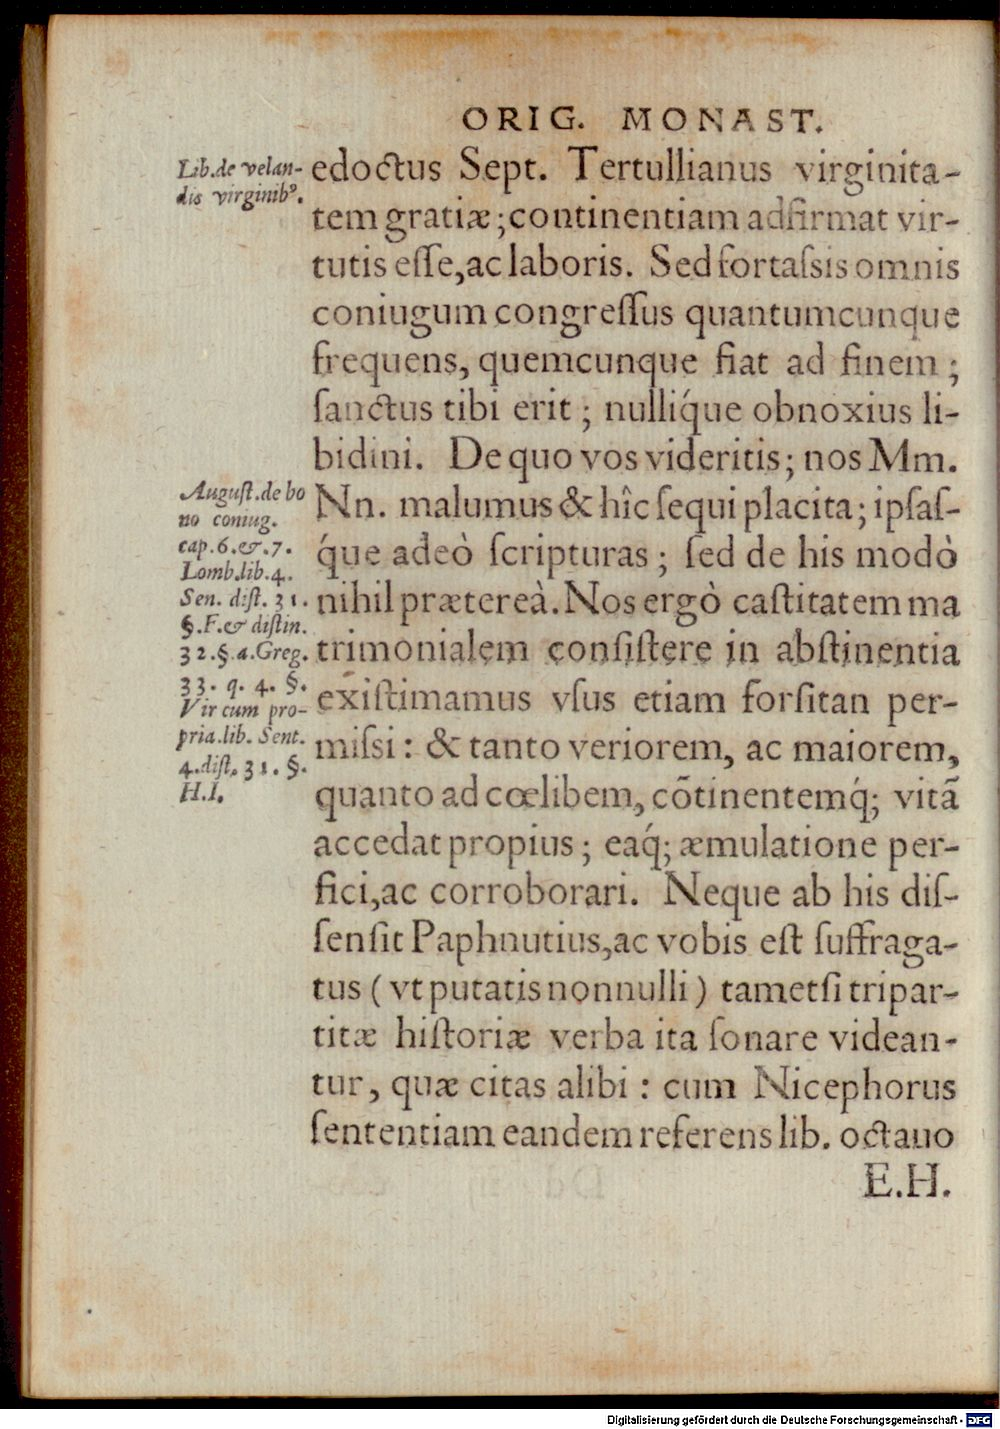 ORIG. MONAST.
Lib.de velan-
dis virginibꝰ.
edoctus Sept. Tertullianus virginita-
tem gratiæ; continentiam adfirmat vir-
tutis eſſe, ac laboris. Sed fortaſsis omnis
coniugum congreſſus quantumcunque
frequens, quemcunque fiat ad finem;
ſanctus tibi erit; nullíque obnoxius li-
bidini. De quo vos videritis; nos Mm.
Nn. malumus & hîc ſequi placita; ipſaſ-
q́ue adeò ſcripturas; ſed de his modò
nihil prætereà. Nos ergò caſtitatem ma
trimonialem conſiſtere in abſtinentia
exiſtimamus vſus etiam forſitan per-
miſsi: & tanto veriorem, ac maiorem,
quanto ad cœlibem, cõtinentemq́; vitã
accedat propius; eaq́; æmulatione per-
fici, ac corroborari. Neque ab his diſ-
ſenſit Paphnutius, ac vobis eſt ſuffraga-
tus (vt putatis nonnulli) tametſi tripar-
titæ hiſtoriæ verba ita ſonare videan-
tur, quæ citas alibi: cum Nicephorus
ſententiam eandem referens lib. octauo
Auguſt.de bo
no coniug.
cap.6.&.7.
Lomb.lib.4.
Sen. diſt. 31.
§.F.& diſtin.
32.§.a.Greg.
33. q. 4. §.
Vir cum pro-
pria.lib. Sent.
4.diſt. 31. §.
H.I.
E.H.
Digitalisierung gefördert durch die Deutsche Forschungsgemeinschaft - DFG